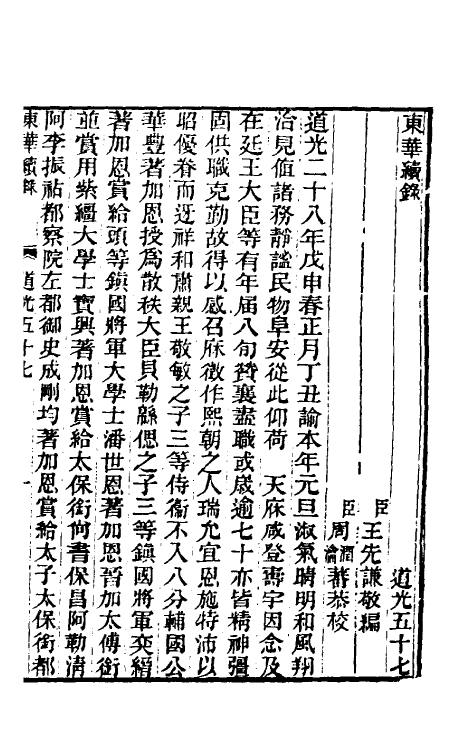 東華續錄
道光五十七
臣王先謙敬編
臣周潤蕃周瀹蕃恭校
道光二十八年戊申春正月丁丑諭本年元旦淑氣晴明和風翔
洽見值諸務靜謐民物阜安從此仰荷　天庥咸登壽宇因念及
在廷王大臣等有年届八旬贊襄盡職或歲逾七十亦皆精神彊
固供職克勤故得以感召庥徵作熙朝之人瑞允宜恩施特沛以
昭優眷而迓祥和肅親王敬敏之子三等侍衞不入八分輔國公
華豐著加恩授爲散秩大臣貝勒緜偲之子三等鎮國將軍奕縉
著加恩賞給頭等鎮國將軍大學士潘世恩著加恩晉加太傅銜
並賞用紫繮大學士寶興著加恩賞給太保銜尚書保昌阿勒清
阿李振祜都察院左都御史成剛均著加恩賞給太子太保銜都
東華續錄　道光五十七　一